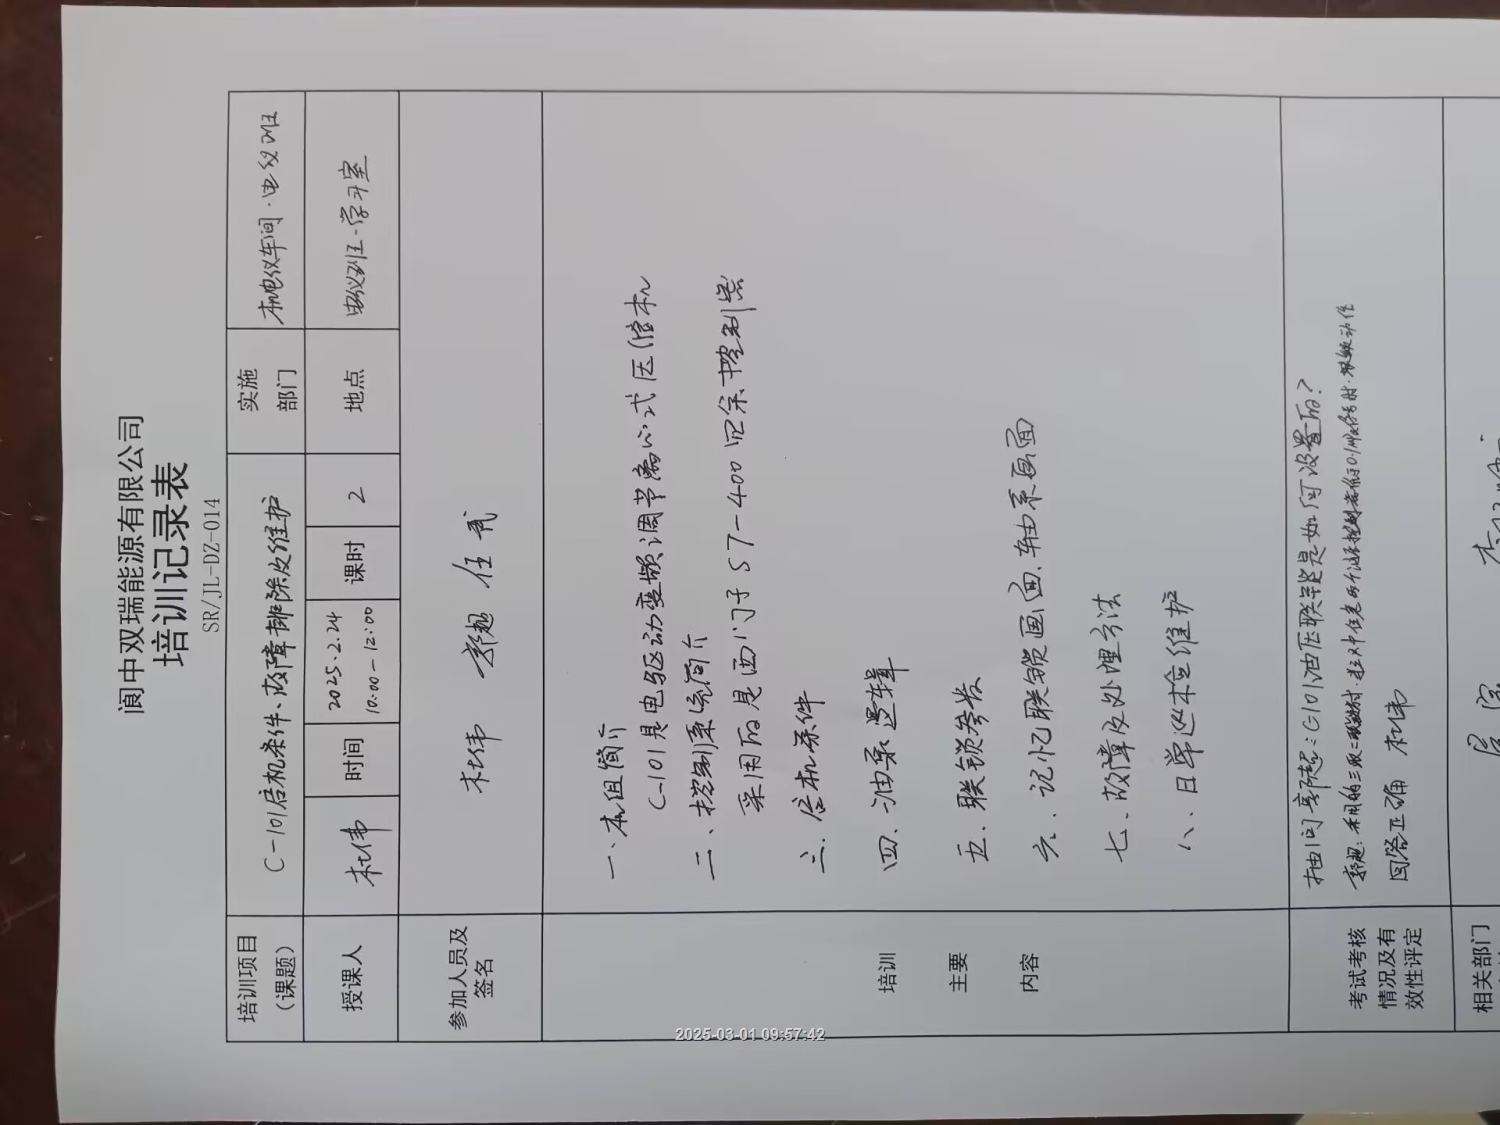 阆中双瑞能源有限公司
培训记录表
SR/JL-DZ-014
培训项目（课题） C-101启机条件、故障排除及维护 实施部门 机电仪车间·电仪班
授课人 杜伟 时间 2025.2.24 10:00-12:00 课时 2 地点 电仪班-学习室
参加人员及签名 杜伟 郭超 任武
培训主要内容
一、机组简介
C-101是电驱动变频调节离心式压缩机
二、控制系统简介
采用的是西门子S7-400冗余中控制器
三、启机条件
四、油泵逻辑
五、联锁参数
六、记忆联锁画面、轴系画面
七、故障及处理方法
八、日常巡检维护
考试考核情况及有效性评定
抽问郭超：C101油压联锁是如何设置的？
郭超：采用的三取二
回答正确 杜伟
相关部门
2025-03-01 09:57:42